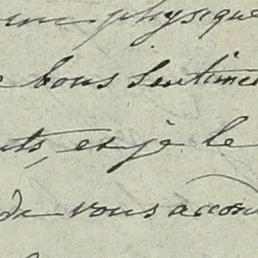 une physique
bons sentime
ts, et je le
de vous accor